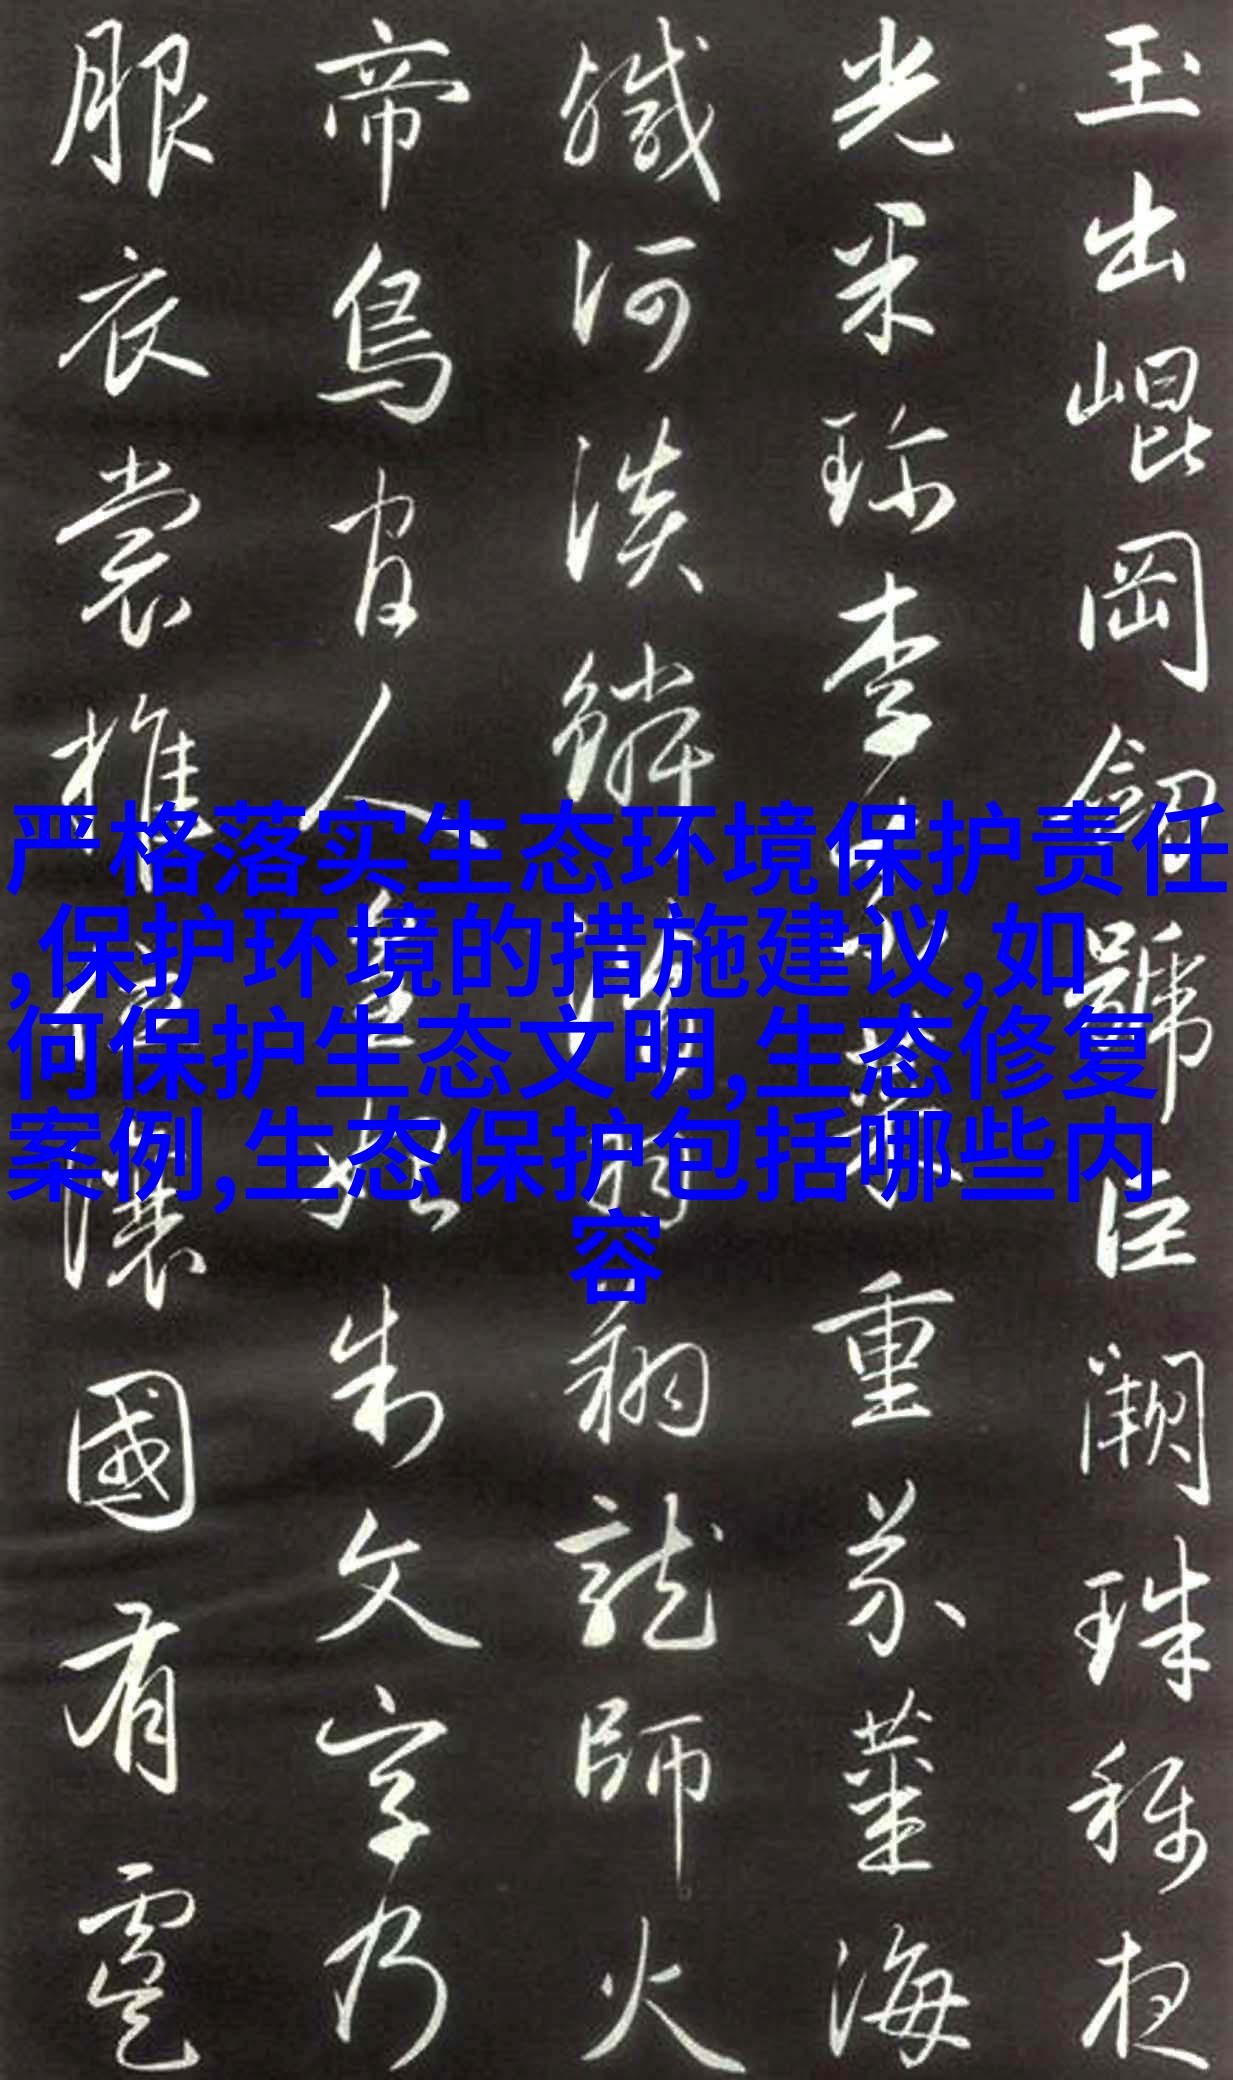 玉出崐岡劒號巨闕珠稱夜
光果珍李柰菜重芥薑海
鹹河淡鱗潛羽翔龍師火
帝鳥官人皇始制文字乃
服衣裳推位讓國有虞
严格落实生态环境保护责任
,保护环境的措施建议,如
何保护生态文明,生态修复
案例,生态保护包括哪些内
容